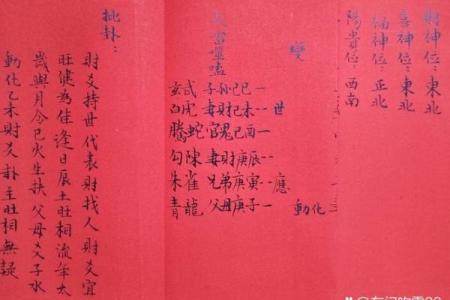 財神位：東北
喜神位：東北
福神位：正北
陽貴位：西南
變
火雷噬嗑
玄武 子孫己巳一
白虎 妻財己未-- 世
騰蛇 官鬼己酉一
勾陳 妻財庚辰--
朱雀 兄弟庚寅-- 應
青龍 父母庚子一 動化
批卦：
財爻持世代表財找人財爻宜
旺健為佳逢日辰土旺相流年太
歲與月令巳火生扶父母爻子水
動化乙未財爻卦主旺相無疑